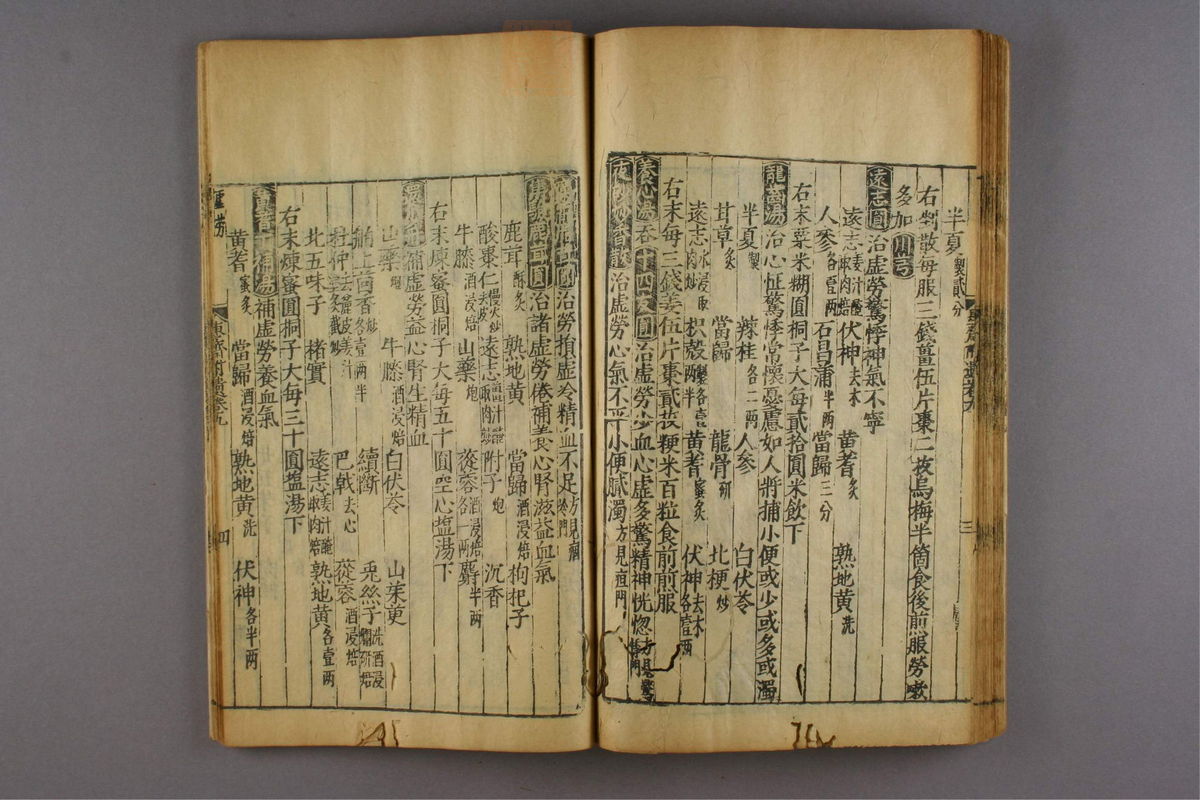 半夏製貳分
右剉散每服三錢薑伍片棗二枚烏梅半箇食後煎服勞嗽
多加川芎
遠志圓治虛勞驚悸神氣不寧
遠志姜汁醃取肉焙 伏神去木 黃蓍炙 熟地黃洗
人參各壹兩 石昌蒲半兩 當歸三分
右末粟米糊圓桐子大每貳拾圓米飲下
龍齒湯治心怔驚悸常懷憂慮如人將捕小便或少或多或濁
半夏製 辣桂各二兩 人參 白伏苓
甘草炙 當歸 龍骨研 北梗炒
遠志水浸取肉炒 枳殼製各壹兩半 黃蓍蜜炙 伏神去木各壹兩
右末每三錢姜伍片棗貳枚粳米百粒食前煎服
養心湯吞十四友圓治虛勞少血心虛多驚精神恍惚方見驚悸門
治虛勞心氣不平小便膩濁方見疸門
治勞損虛冷精血不足方見
治諸虛勞倦補養心腎滋益血氣
鹿茸酥炙 熟地黃 當歸酒浸焙 枸杞子
酸棗仁慢火炒去皮 遠志 附子炮 沉香
牛膝酒浸焙 山藥炮 蓯蓉酒浸焙各一兩 麝半兩
右末煉蜜圓桐子大每五十圓空心塩湯下
補虛勞益心腎生精血
山藥炮 牛膝酒浸焙 白伏苓 山茱萸
舶上茴香炒各壹兩半 續斷 兎絲子洗酒浸爛研焙
杜仲去麄皮姜汁炙截炒 巴戟去心 蓯蓉酒浸焙
北五味子 楮實 遠志姜汁醃取肉焙 熟地黃各壹兩
右末煉蜜圓桐子大每三十圓塩湯下
黃蓍十補湯補虛勞養血氣
黃蓍蜜炙 當歸酒浸焙 熟地黃洗 伏神各半兩